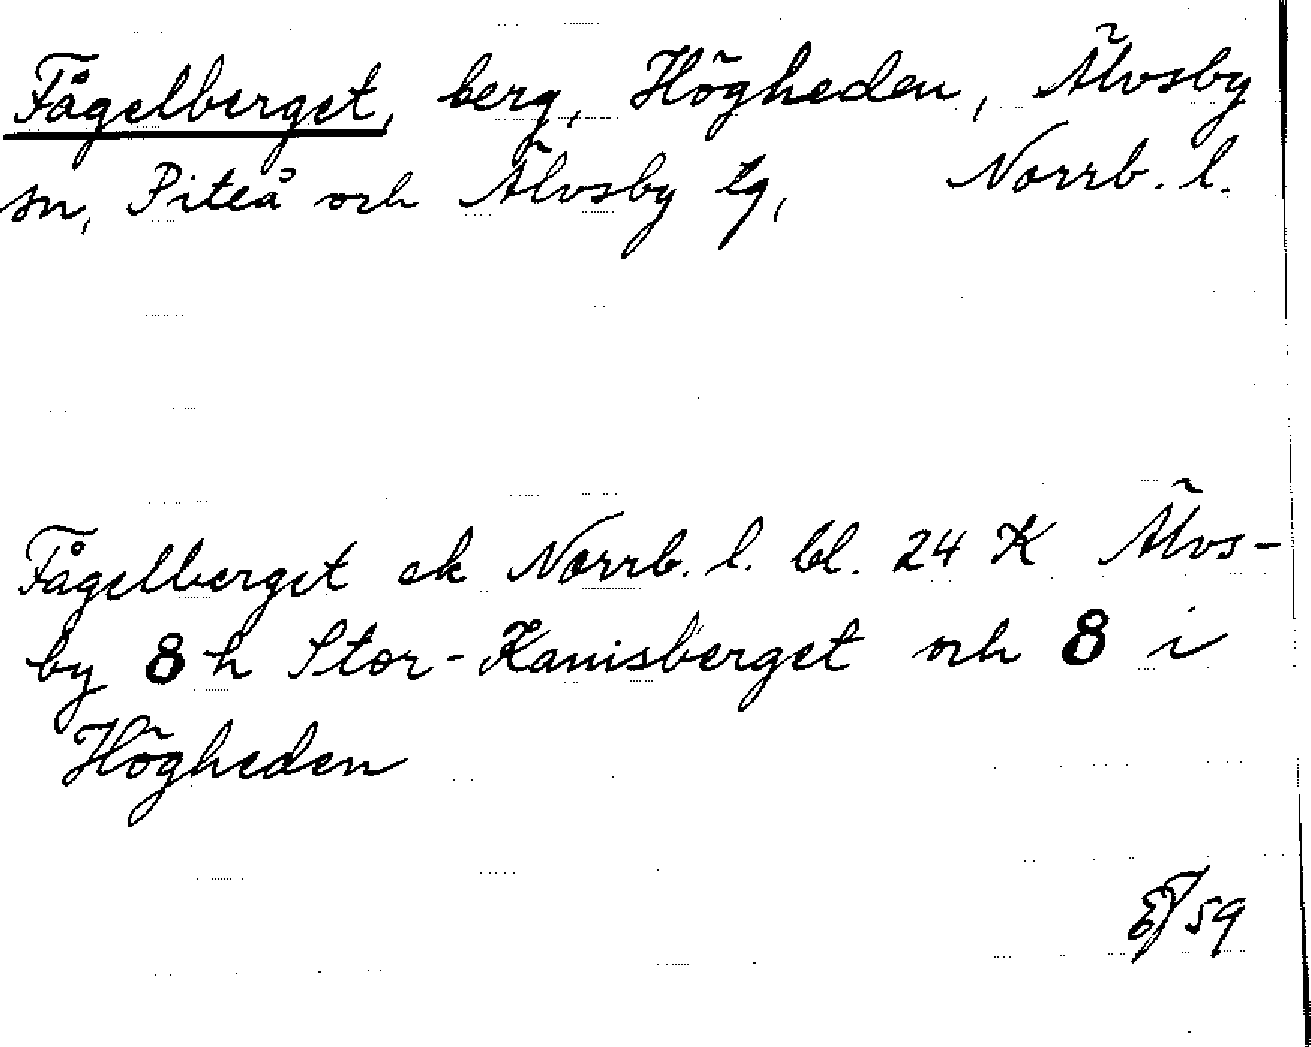 Fågelberget, berg, Högheden, Älvsby
sn, Piteå och Älvsby tg, Norrb. l.
Fågelberget ek Norrb. l. bl. 24 K Älvs-
by 8 h Stor-Kanisberget och 8 i
Högheden
59